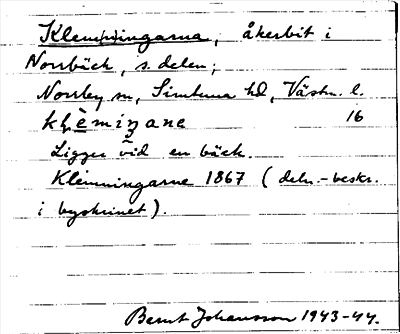 Klem(n)ingarna, åkerbit i
Norrbäck, s. delen;
Norrby sn, Simtuna hd, Västm. l.
16
Ligger vid en bäck.
Klemningarne 1867 (deln.-beskr.
i byskrinet).
Bernt Johansson 1943-44.